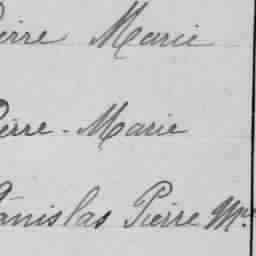 ierre Marie
ierre-Marie
anislas Pierre Mie